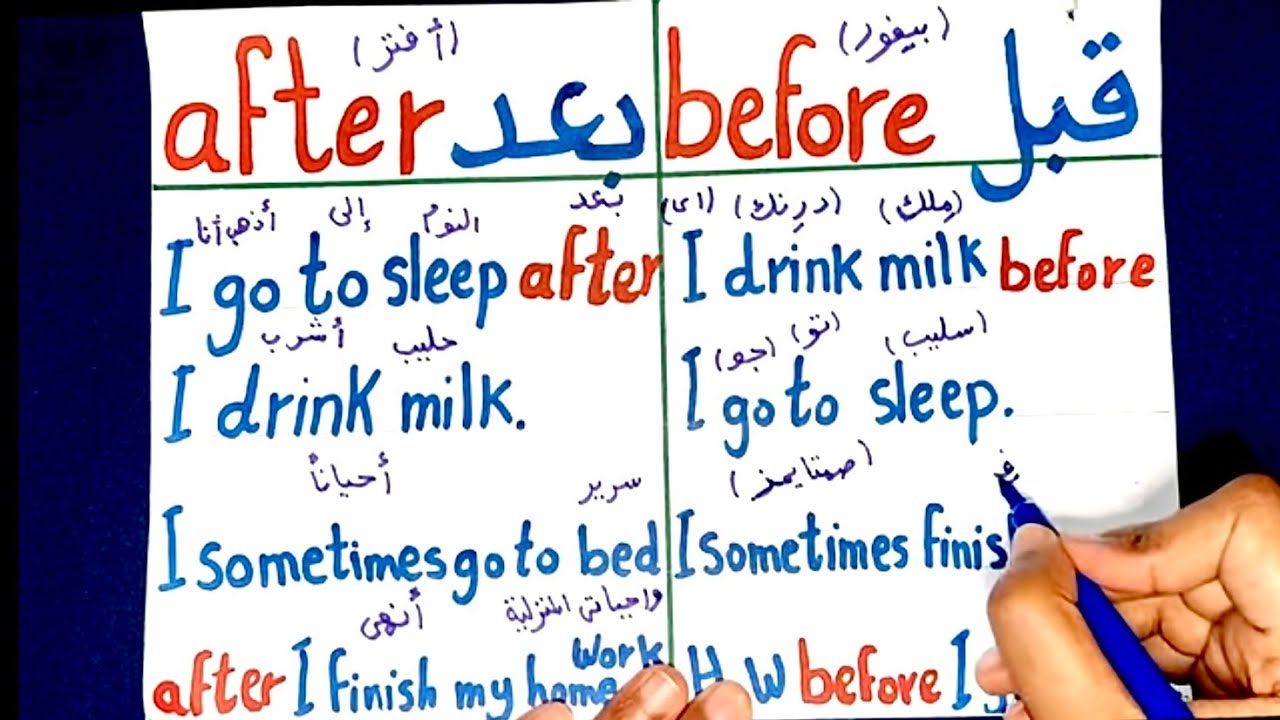 after (أفتر) بعد
أذهب أنا إلى النوم بعد
I go to sleep after
أشرب حليب
I drink milk.
أحياناً سرير
I sometimes go to bed
أنهي واجباتي المنزلية
after I finish my home work
before (بيفور) قبل
(اى) (درنك) (مِلك)
I drink milk before
(جو) (تو) (سليب)
I go to sleep.
(صمتايمز)
I sometimes
H W before I